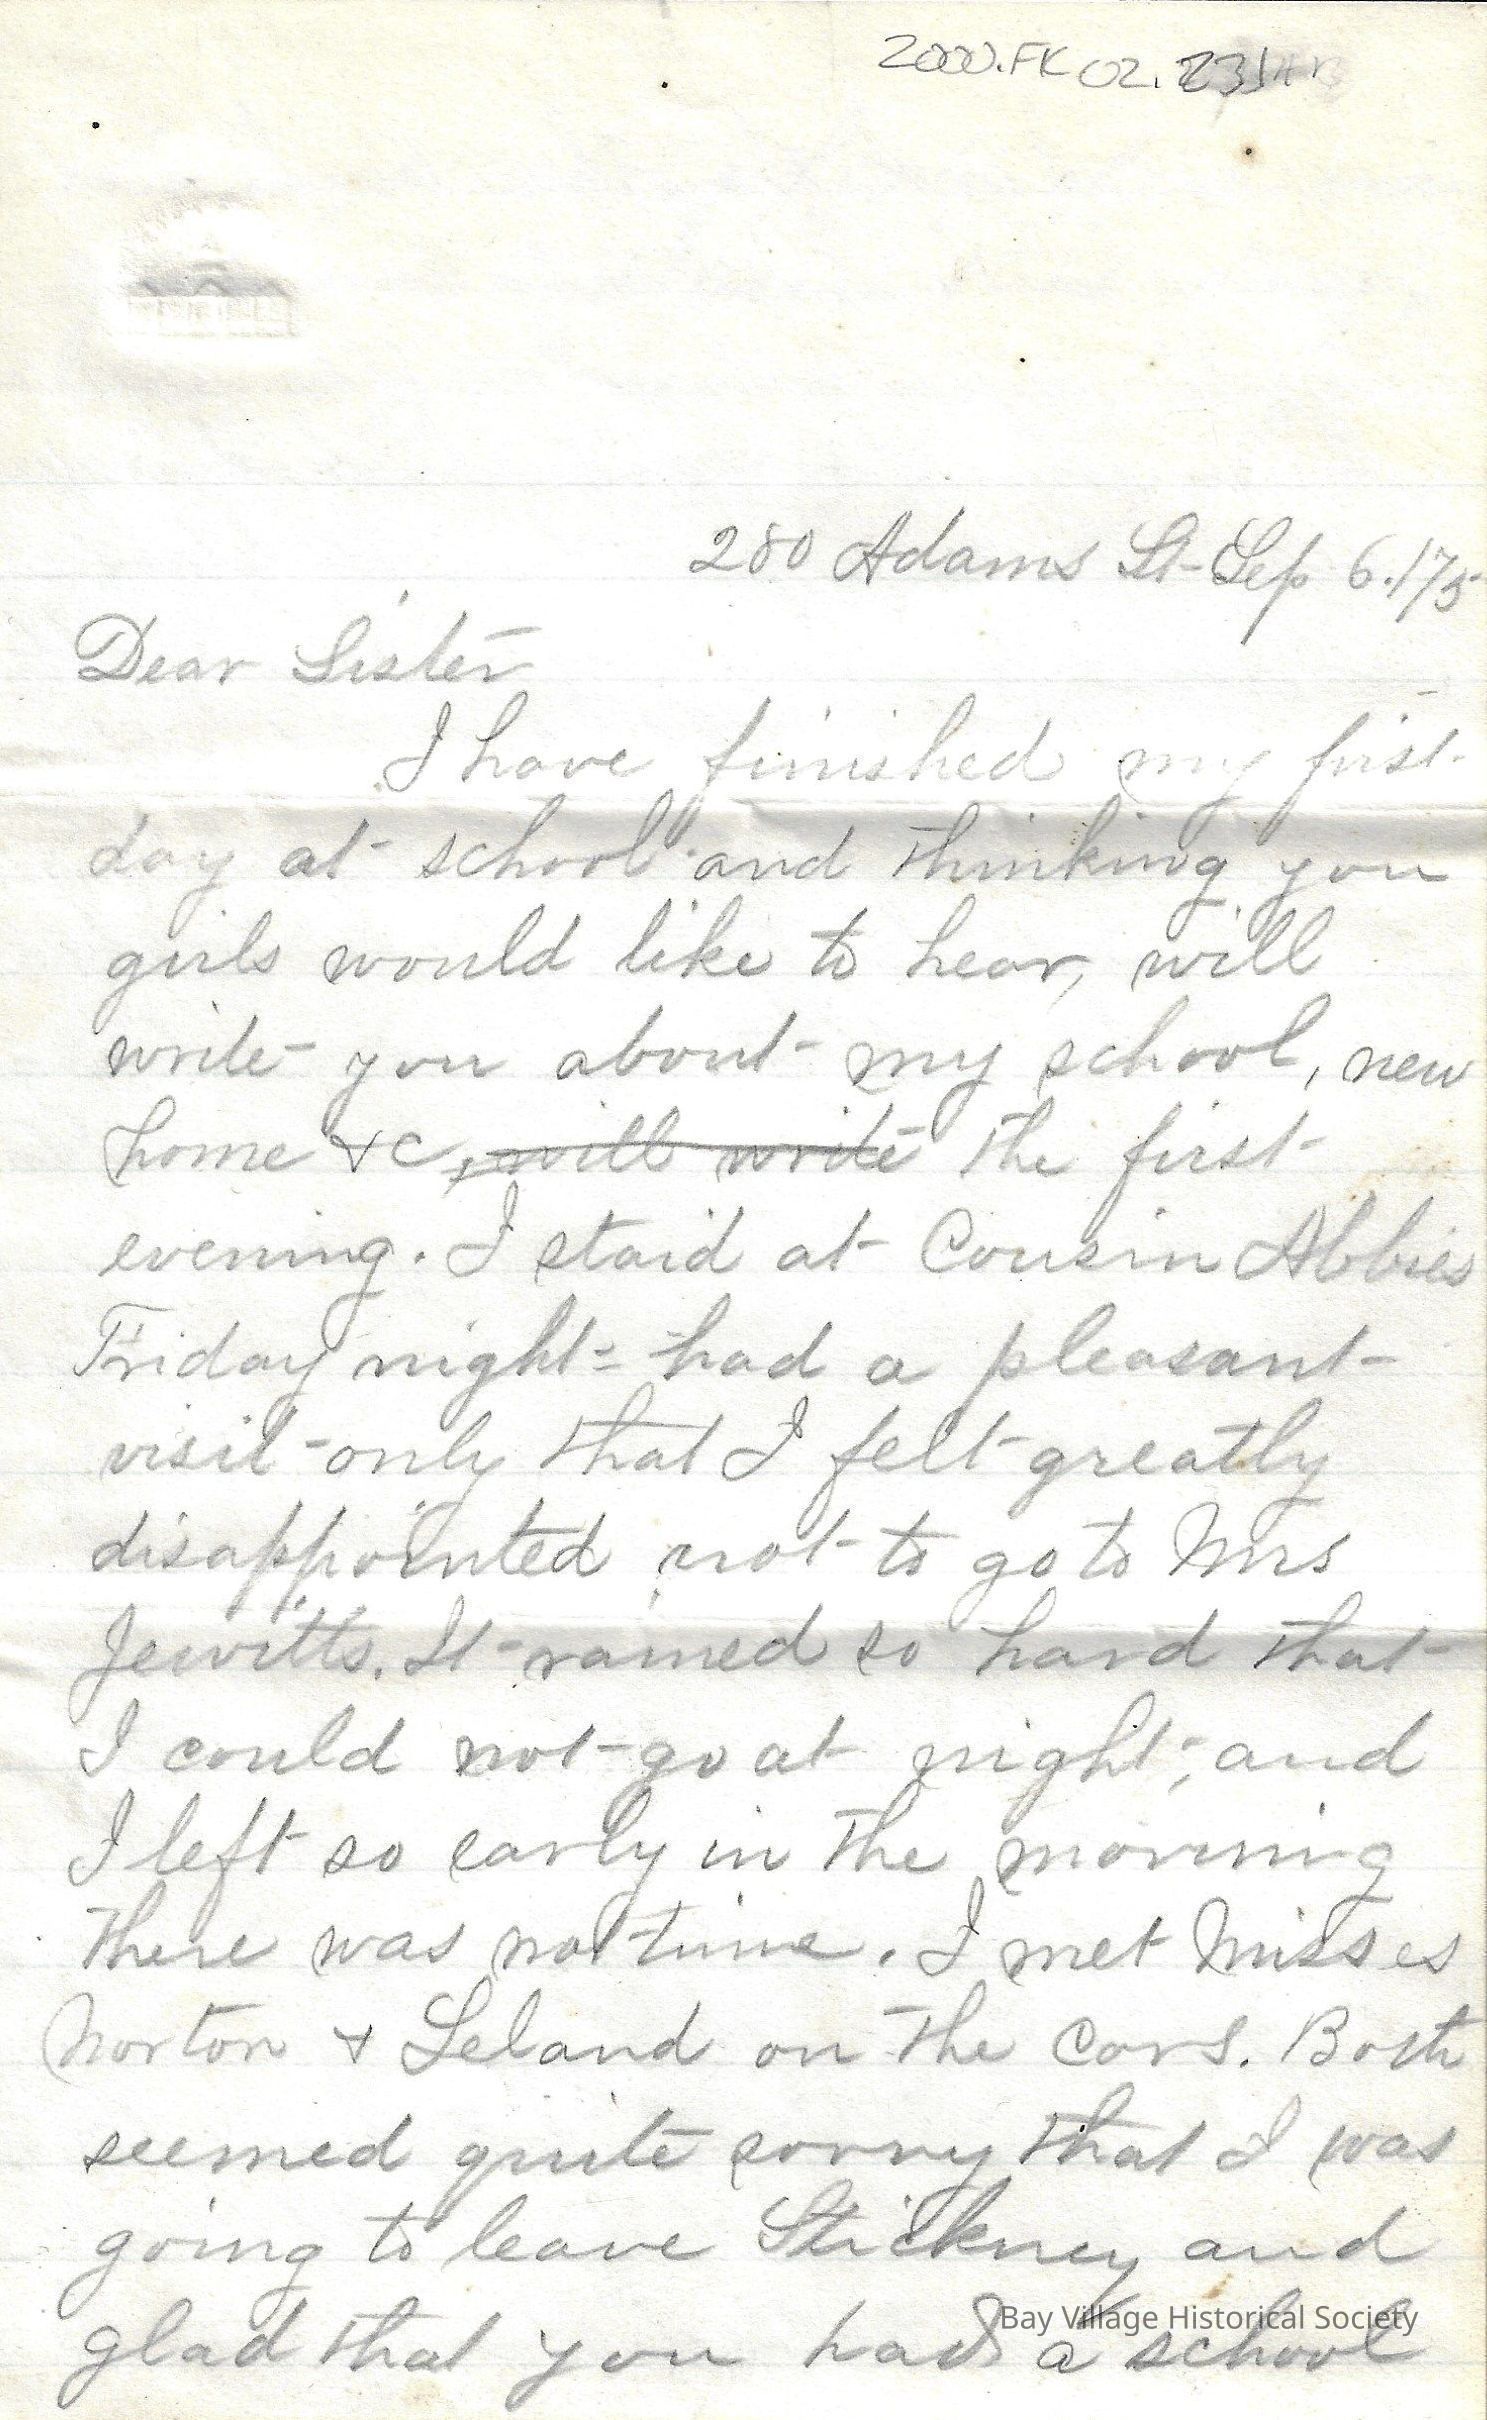 2000.FK 02. 231AB
280 Adams St- Sep 6./75
Dear Sister
I have finished my first
day at school and thinking you
girls would like to hear, will
write you about my school, new
home &c, will write the first
evening. I staid at Cousin Abbies
Friday night - had a pleasant
visit - only that I felt greatly
disappointed not to go to Mrs
Jewitts. It rained so hard that
I could not go at night; and
I left so early in the morning
there was no time. I met Misses
Norton & Leland on the cars. Both
seemed quite sorry that I was
going to leave Stickney and
glad that you had a school
Bay Village Historical Society